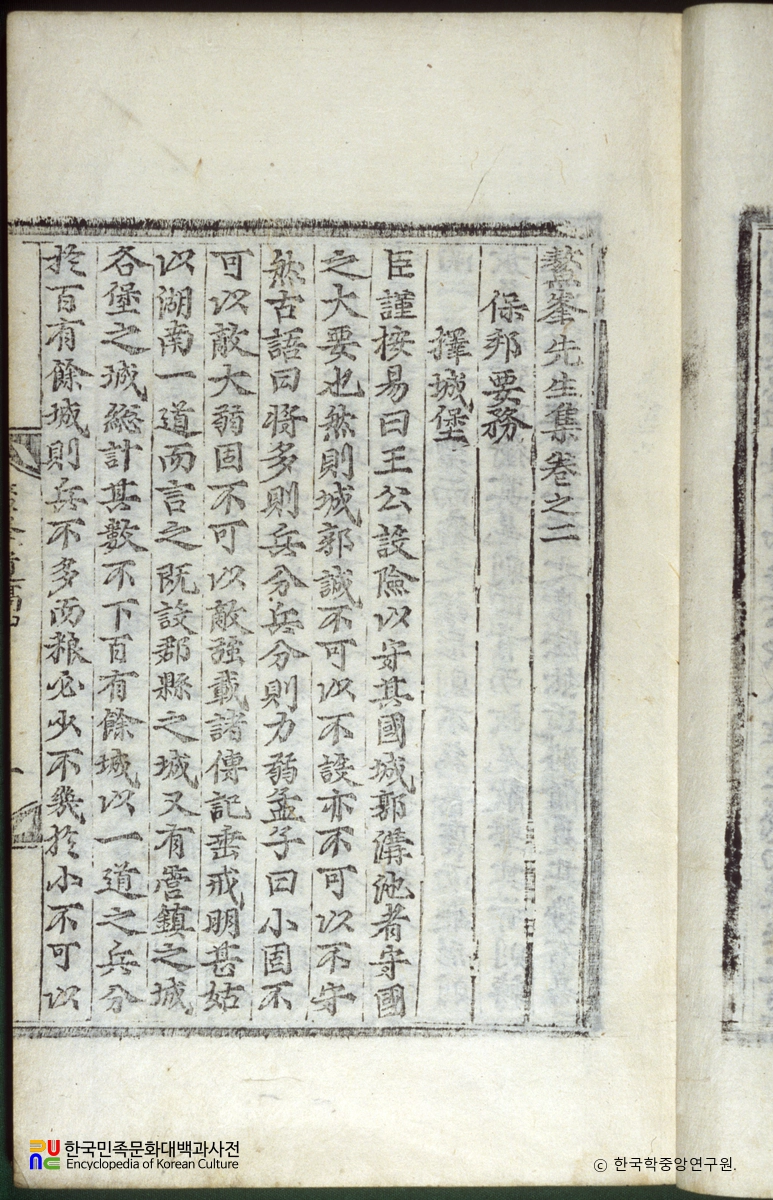 鰲峯先生集卷之二
保邦要務
擇城堡
臣謹按易曰王公設險以守其國城郭溝池者守國
之大要也然則城郭誠不可以不設亦不可以不守
然古語曰將多則兵分兵分則力弱孟子曰小固不
可以敵大弱固不可以敵强載諸傳記垂戒明甚姑
以湖南一道而言之旣設郡縣之城又有營鎭之城
各堡之城総計其數不下百有餘城以一道之兵分
於百有餘城則兵不多而粮必少不幾於小不可以
한국민족문화대백과사전
Encyclopedia of Korean Culture
ⓒ 한국학중앙연구원.